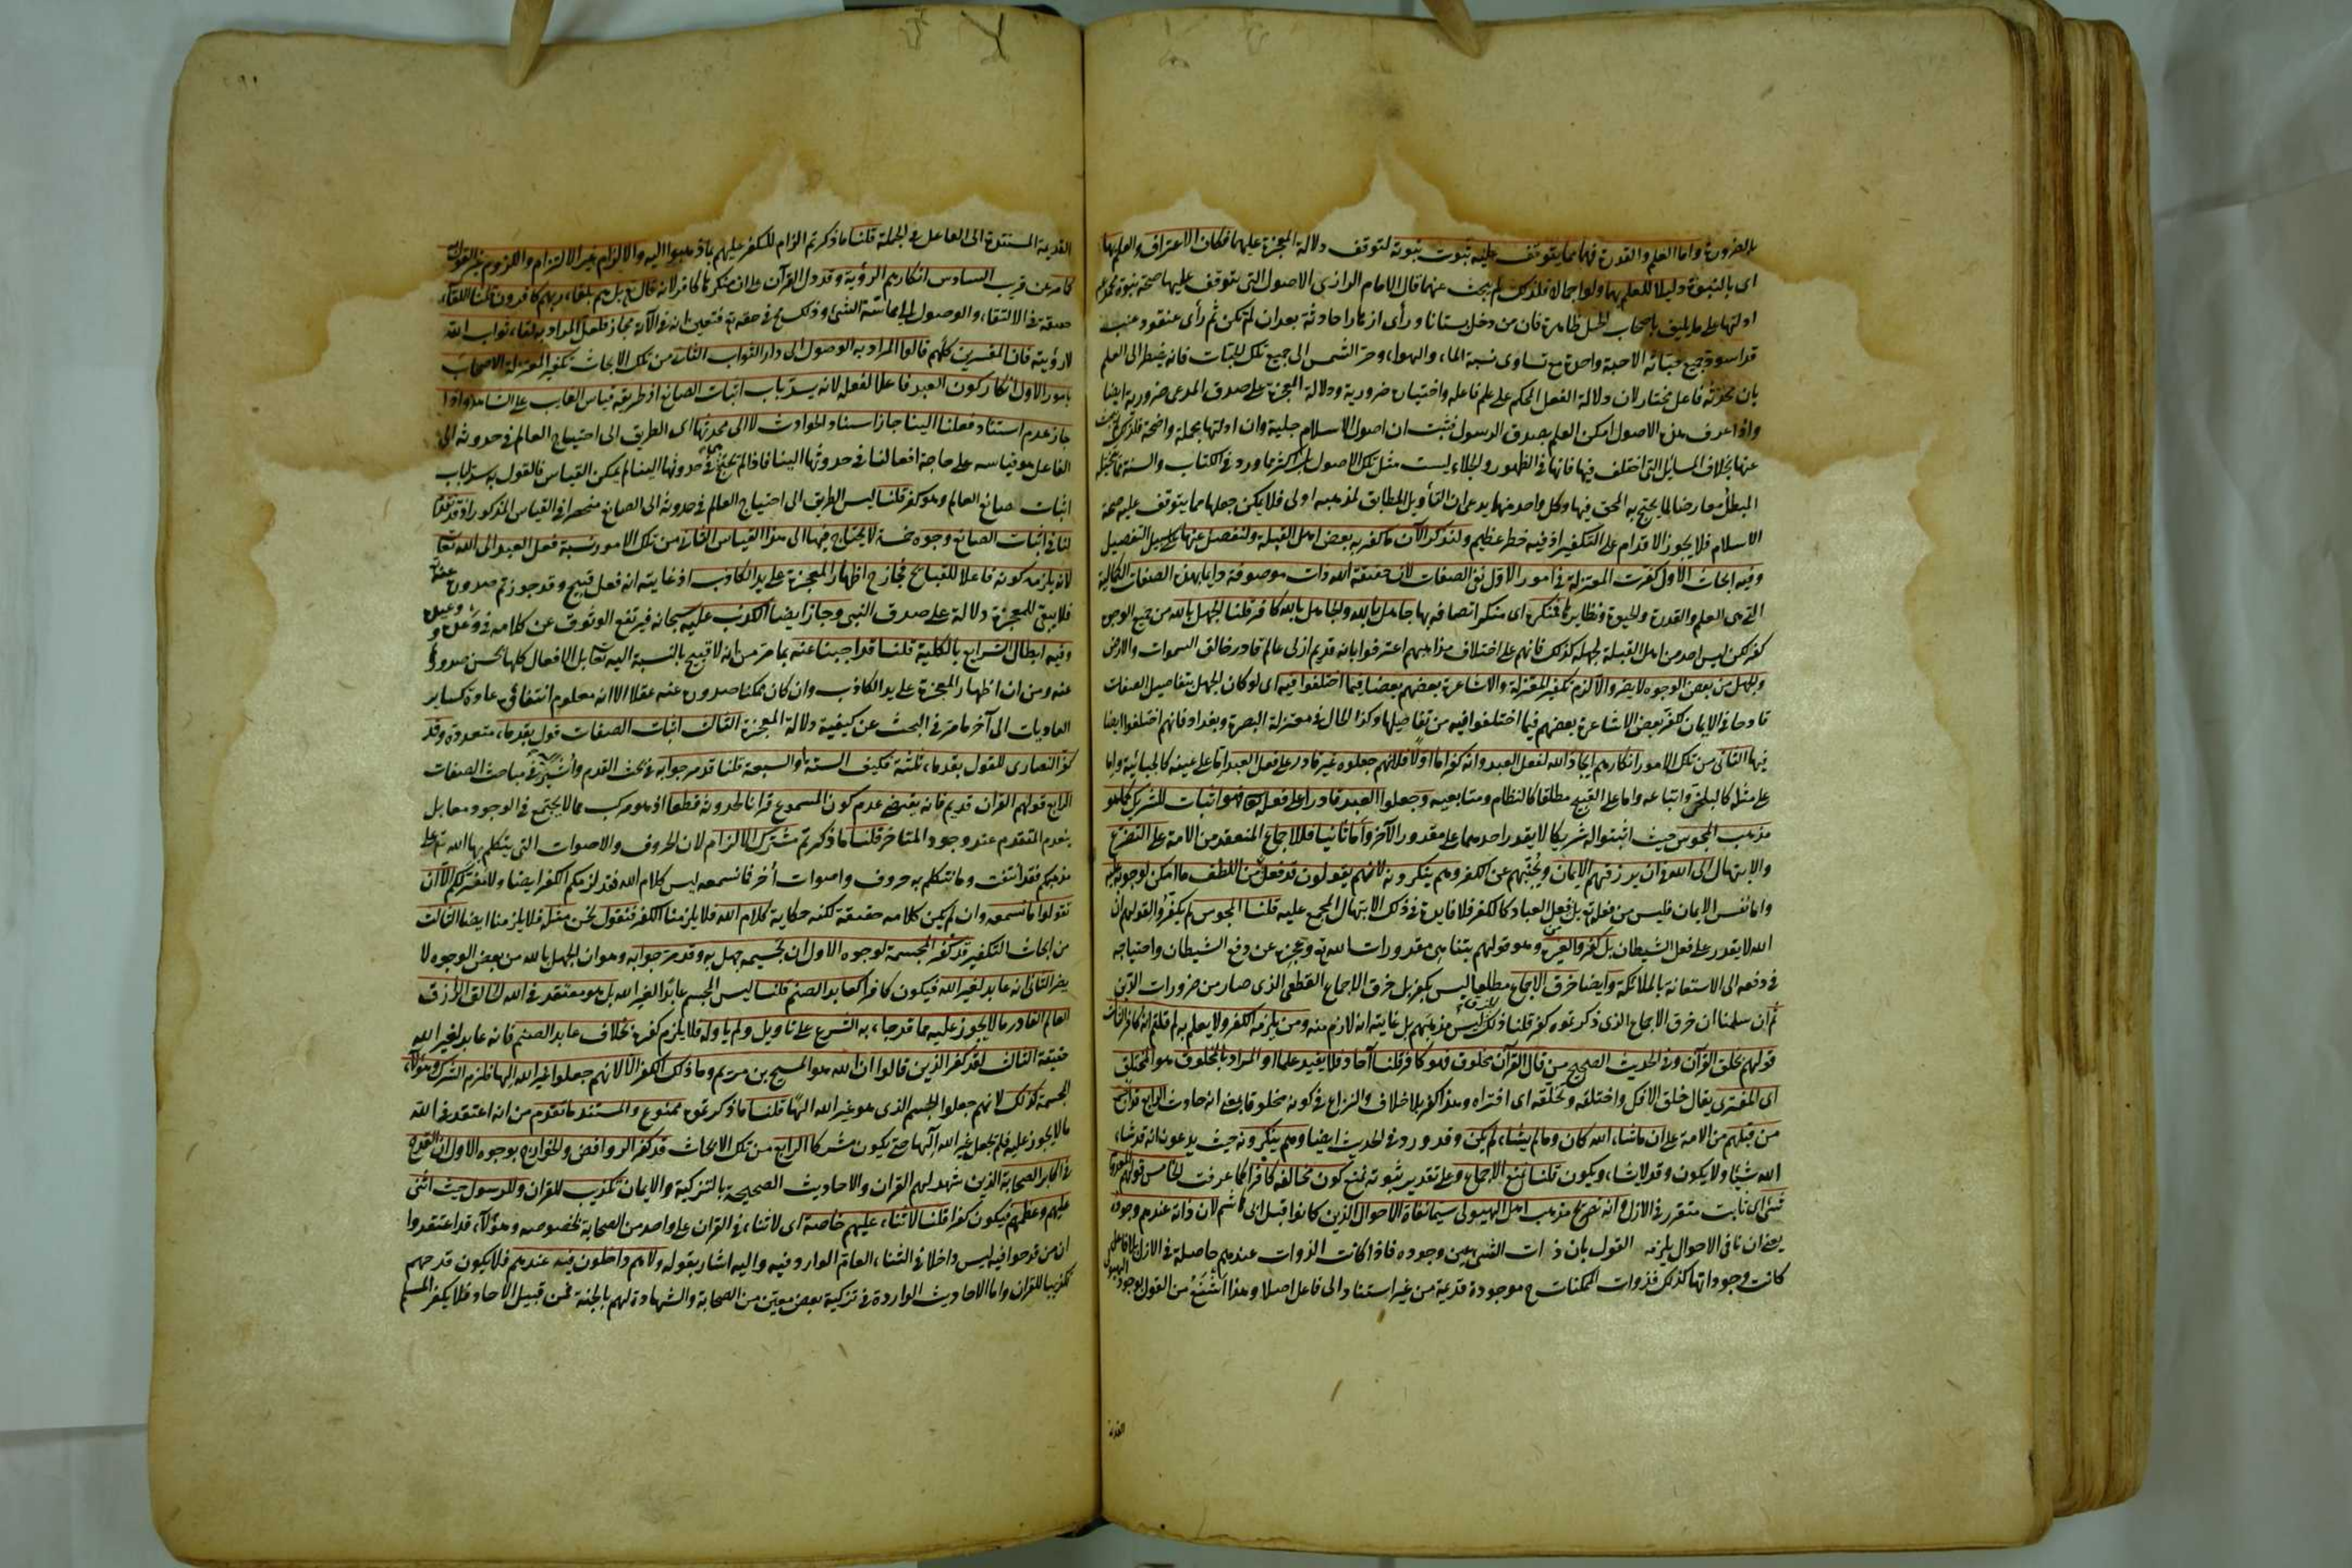 بالضرورة واما العلم والقدرة فهما مما يتوقف عليه ثبوت نبوته لتوقف دلالة المعجزة عليهما فكان الاعتراف والعلم بها
اى بالنبوة دليلا للعلم بهما ولو اجمالا فلذلك لم يبحث عنها قال الامام الرازى الاصول التى يتوقف عليها صحة نبوة محمد عم
ادلتها على ما يليق باصحاب الجمل ظاهرة فان من دخل بستانا ورأى ازهارا حادثة بعد ان لم تكن ثم رأى عنقود عنب
قد اسود جميع حباته الا حبة واحدة مع تساوى نسبة الماء والهواء وحر الشمس الى جميع تلك الحبات فانه يضطر الى العلم
بان محدثه فاعل مختار لان دلالة الفعل المحكم على علم فاعله واختياره ضرورية ودلالة المعجزة على صدق المدعى ضرورية ايضا
واذا عرف هذه الاصول امكن العلم بصدق الرسول فثبت ان اصول الاسلام جلية وان ادلتها مجملة واضحة فلذلك لم يبحث
عنها بخلاف المسائل التى اختلف فيها فانها فى الظهور والجلاء ليست مثل تلك الاصول بل اكثرها مما ورد فى الكتاب والسنة ما يتخيله
المبطل معارضا لما يحتج به المحق فيها وكل واحد منهما يدعى ان التأويل المطابق لمذهبه اولى فلا يمكن جعلها مما يتوقف عليه صحة
الاسلام فلا يجوز الاقدام على التكفير اذ فيه خطر عظيم ولنذكر الآن ما كفر به بعض اهل القبلة ولنفصل عنها على سبيل التفصيل
وفيه ابحاث الاول كفرت المعتزلة فى امور الاول نفى الصفات لان حقيقة الله ذات موصوفة دايما بهذه الصفات الكمالية
التى هى العلم والقدرة والحيوة ونظايرها فمنكره اى منكر اتصافه بها جاهل بالله والجاهل بالله كافر قلنا الجهل بالله من جميع الوجوه
كفر لكن ليس احد من اهل القبلة يجهله كذلك فانهم على اختلاف مذاهبهم اعترفوا بانه قديم ازلى عالم قادر خالق السموات والارض
والجهل من بعض الوجوه لا يضر والا لزم تكفير المعتزلة والاشاعرة بعضهم بعضا فيما اختلفوا فيه اى لو كان الجهل بتفاصيل الصفات
قادحا فى الايمان لكفر بعض الاشاعرة بعضهم فيما اختلفوا فيه من تفاصيلها وكذا الحال فى معتزلة البصرة وبغداد فانهم اختلفوا ايضا
فيها الثانى من تلك الامور انكارهم ايجاد الله لفعل العبد وانه كفر اما اولا فلانهم جعلوه غير قادر على فعل العبد اما على عينه كالجبائية واما
على مثله كالبلخى واتباعه واما على القبيح مطلقا كالنظام ومتابعيه وجعلوا العبد قادرا على فعله فهو اثبات للشريك كما هو
مذهب المجوس حيث اثبتوا له شريكا لا يقدر احدهما على مقدور الآخر واما ثانيا فللاجماع المنعقد من الامة على التضرع
والابتهال الى الله فى ان يرزقهم الايمان ويجنبهم عن الكفر وهم ينكرونه لانهم يقولون قد فعل من اللطف ما امكن لوجوبه عليه
واما نفس الايمان فليس من فعله تع بل فعل العباد كالكفر فلا فايدة فى ذلك الابتهال المجمع عليه قلنا المجوس لم يكفروا لقولهم ان
الله لا يقدر على فعل الشيطان بل كفروا لغيره وهو قولهم بتناهى مقدورات الله تع وعجزه عن دفع الشيطان واحتياجه
فى دفعه الى الاستعانة بالملائكة وايضا خرق الاجماع مطلقا ليس بكفر بل خرق الاجماع القطعى الذى صار من ضرورات الدين
ثم ان سلمنا ان خرق الاجماع الذى ذكرتموه كفر قلنا ذلك ليس مذهبهم بل غايته انه لازم منه ومن يلزمه الكفر ولا يعلم به لم قلتم انه كافر الثالث
قولهم بخلق القرآن وفى الحديث الصحيح من قال القرآن مخلوق فهو كافر قلنا آحاد فلا يفيد علما او المراد بالمخلوق هو المختلق
اى المفترى يقال خلق الافك واختلقه وتخلقه اى افتراه وهذا كفر بلا خلاف والنزاع فى كونه مخلوقا بمعنى انه حادث الرابع
من قبلهم من الامة على ان ماشاء الله كان وما لم يشاء لم يكن وقد ورد فى الحديث ايضا وهم ينكرونه حيث يدعون انه قد شاء
الله شيئا ولا يكون وقد لا يشاء ويكون قلنا نمنع الاجماع وعلى تقدير ثبوته نمنع كون مخالفه كافرا كما عرفت الخامس قولهم المعدوم
شىء اى ثابت متقرر فى الازل وانه تصريح بمذهب اهل الهيولى سيما نفاة الاحوال الذين كانوا قبل ابى هاشم لان ذاته عندهم وجوده
يعنى ان نافى الاحوال يلزمه القول بان ذات الشىء عين وجوده فاذا كانت الذوات عندهم حاصلة فى الازل بلا فاعل
كانت وجوداتها كذلك فذوات الممكنات ح موجودة قديمة من غير استناد الى فاعل اصلا وهذا اشنع من القول بوجود الهيولى
القديمة
القديمة المستندة الى الفاعل فى الجملة قلنا ما ذكرتم الزام للكفر عليهم بما ذهبوا اليه والالزام غير الالتزام واللزوم غير القول به
كما مر عن قريب السادس انكارهم الرؤية وقد دل القرآن على ان منكرها كافر لانه قال تع بل هم بلقاء ربهم كافرون قلنا اللقاء
حقيقة فى الالتقاء والوصول الى مماسة الشىء وذلك مح فى حقه تع فتعين انه فى الآية مجاز فلعل المراد به لقاء ثواب الله
لا رؤيته فان المفسرين كلهم قالوا المراد به الوصول الى دار الثواب الثانى من تلك الابحاث تكفير المعتزلة الاصحاب
بامور الاول انكار كون العبد فاعلا لفعله لانه يسد باب اثبات الصانع اذ طريقه قياس الغايب على الشاهد واذا
جاز عدم استناد فعلنا الينا جاز اسناد الحوادث لا الى محدثها اى الطريق الى احتياج العالم فى حدوثه الى
الفاعل هو قياسه على حاجة افعالنا فى حدوثها الينا فاذا لم يحتج فى حدوثها الينا لم يمكن القياس فالقول به سد لباب
اثبات صانع العالم وهو كفر قلنا ليس الطريق الى احتياج العالم فى حدوثه الى الصانع منحصرا فى القياس المذكور اذ قد تقدم
لنا فى اثبات الصانع وجوه خمسة لا يحتاج فيها الى هذا القياس الثانى من تلك الامور نسبة فعل العبد الى الله تعا
لانه يلزمه كونه فاعلا للقبايح فجاز ح اظهار المعجزة على يد الكاذب اذ غايته انه فعل قبيح وقد جوزتم صدوره عنه
فلا يبقى للمعجزة دلالة على صدق النبى وجاز ايضا الكذب عليه سبحانه فيرتفع الوثوق عن كلامه فى وعده ووعيده
وفيه ابطال الشرايع بالكلية قلنا قد اجبنا عنه بما مر من انه لا قبيح بالنسبة اليه تعا بل الافعال كلها يحسن صدورها
عنه ومن ان اظهار المعجزة على يد الكاذب وان كان ممكنا صدوره عنه عقلا الا انه معلوم انتفاؤه عادة كساير
العاديات الى آخر ما مر فى البحث عن كيفية دلالة المعجزة الثالث اثبات الصفات قول بقدماء متعددة وقد
كفر النصارى للقول بقدماء ثلثة فكيف الستة او السبعة قلنا قد مر جوابه فى بحث القدم واشير فى مباحث الصفات
الرابع قولهم القرآن قديم فانه يقتضى عدم كون المسموع قرانا لحدوثه قطعا اذ هو مركب مما لا يجتمع فى الوجود معا بل
ينعدم المتقدم عند وجود المتاخر قلنا ما ذكرتم مشترك الالزام لان الحروف والاصوات التى يتكلم بها الله تع على
مذهبكم فقد انتفت وما نتكلم به حروف واصوات أخر فما نسمعه ليس كلام الله فقد لزمكم الكفر ايضا ولا مفر لكم الا ان
تقولوا ما نسمعه وان لم يكن كلامه حقيقة لكنه حكاية كلام الله فلا يلزمنا الكفر فنقول نحن مثله فلا يلزمنا ايضا الثالث
من ابحاث التكفير قد كفر المجسمة لوجوه الاول ان تجسيمه جهل به وقد مر جوابه وهو ان الجهل بالله من بعض الوجوه لا
يضر الثانى انه عابد لغير الله فيكون كافرا كعابد الصنم قلنا ليس المجسم عابدا لغير الله بل هو معتقد فى الله الخالق الرازق
العالم القادر ما لا يجوز عليه مما قد جاء به الشرع على تاويل ولم ياوله فلا يلزم كفره بخلاف عابد الصنم فانه عابد لغير الله
حقيقة الثالث لقد كفر الذين قالوا ان الله هو المسيح بن مريم وما ذلك الكفر الا لانهم جعلوا غير الله الها فلزم الشرك وهؤلاء
المجسمة كذلك لانهم جعلوا الجسم الذى هو غير الله الها قلنا ما ذكرتموه ممنوع والمستند ما تقدم من انه اعتقد فى الله
ما لا يجوز عليه فلم يجعل غير الله آلها حتى يكون مشركا الرابع من تلك الابحاث قد كفر الروافض والخوارج بوجوه الاول ان القدح
فى اكابر الصحابة الذين شهد لهم القران والاحاديث الصحيحة بالتزكية والايمان تكذيب للقران وللرسول حيث اثنى
عليهم وعظمهم فيكون كفرا قلنا لا ثناء عليهم خاصة اى لا ثناء فى القران على واحد من الصحابة بخصوصه وهؤلاء قد اعتقدوا
ان من قدحوا فيه ليس داخلا فى الثناء العام الوارد فيه واليه اشار بقوله ولا هم داخلون فيه عندهم فلا يكون قدحهم
تكذيبا للقران واما الاحاديث الواردة فى تزكية بعض معين من الصحابة والشهادة لهم بالجنة فمن قبيل الآحاد فلا يكفر المسلم